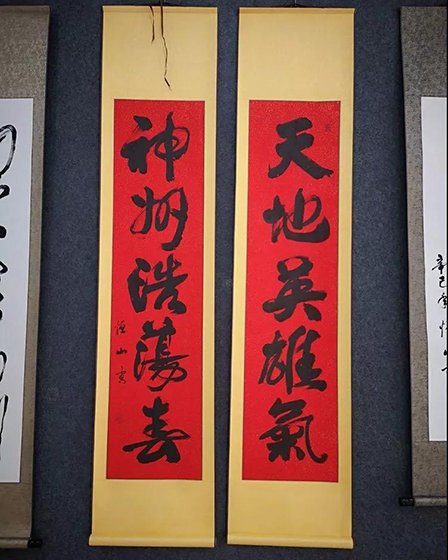 辛巳年
天地英雄氣
神州浩蕩春
山書